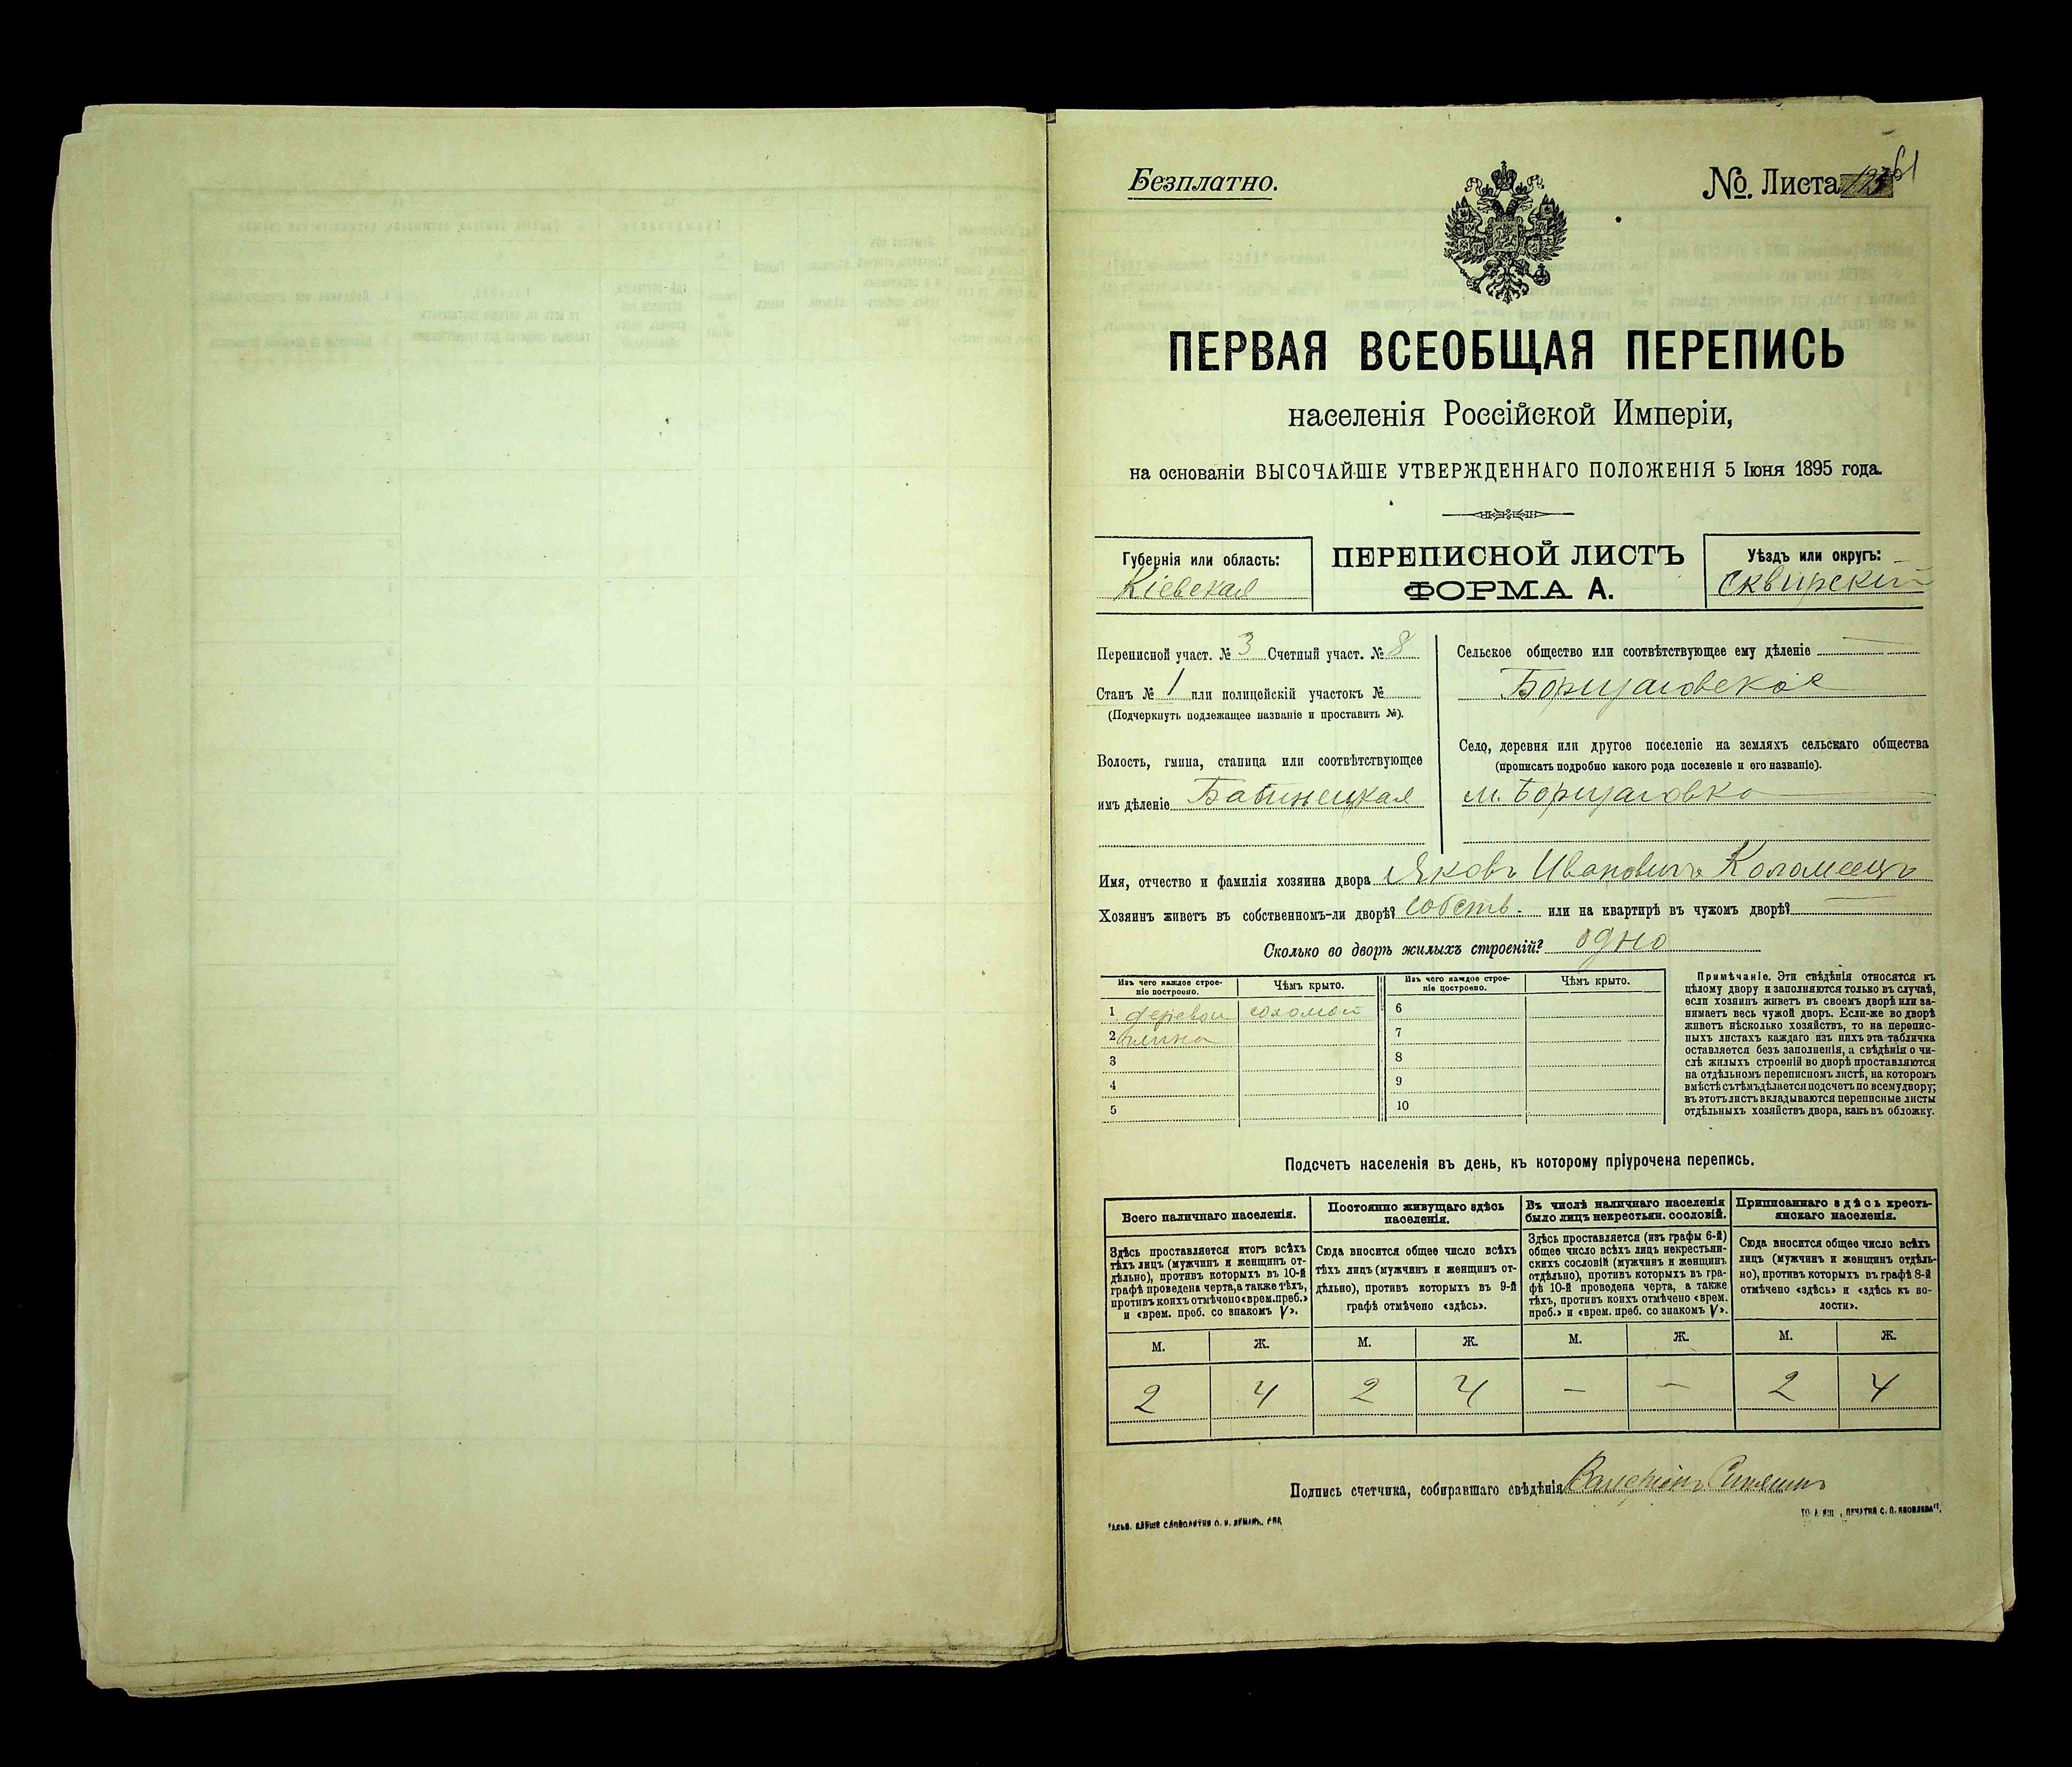 Безплатно.
№. Листа 61
ПЕРВАЯ ВСЕОБЩАЯ ПЕРЕПИСЬ
населенія Россійской Имперіи,
на основаніи ВЫСОЧАЙШЕ УТВЕРЖДЕННАГО ПОЛОЖЕНІЯ 5 Іюня 1895 года.
Губернія или область:
Кіевская
ПЕРЕПИСНОЙ ЛИСТЪ
ФОРМА А.
Уѣздъ или округъ:
Сквирскій
Переписной участ. № 3 Счетный участ. № 8
Станъ № 1 или полицейскій участокъ №
(Подчеркнуть подлежащее названіе и проставить №).
Волость, гмина, станица или соотвѣтствующее
имъ дѣленіе Бабинецкая
Сельское общество или соотвѣтствующее ему дѣленіе
Борщаговское
Село, деревня или другое поселеніе на земляхъ сельскаго общества
(прописать подробно какого рода поселеніе и его названіе).
м. Борщаговка
Имя, отчество и фамилія хозяина двора Яковъ Ивановичъ Коломеецъ
Хозяинъ живетъ въ собственномъ-ли дворѣ? собств. или на квартирѣ въ чужомъ дворѣ?
Сколько во дворѣ жилыхъ строеній? одно
Изъ чего каждое строе-
ніе построено.
Чѣмъ крыто.
Изъ чего каждое строе-
ніе построено.
Чѣмъ крыто.
1 дерево и соломой 6
2 глина 7
3 8
4 9
5 10
Примѣчаніе. Эти свѣдѣнія относятся къ
цѣлому двору и заполняются только въ случаѣ,
если хозяинъ живетъ въ своемъ дворѣ или за-
нимаетъ весь чужой дворъ. Если-же во дворѣ
живетъ нѣсколько хозяйствъ, то на перепис-
ныхъ листахъ каждаго изъ нихъ эта табличка
оставляется безъ заполненія, а свѣдѣнія о чи-
слѣ жилыхъ строеній во дворѣ проставляются
на отдѣльномъ переписномъ листѣ, на которомъ
вмѣстѣ съ тѣмъ дѣлается подсчетъ по всему двору;
въ этотъ листъ вкладываются переписные листы
отдѣльныхъ хозяйствъ двора, какъ въ обложку.
Подсчетъ населенія въ день, къ которому пріурочена перепись.
Всего наличнаго населенія.
Здѣсь проставляется итогъ всѣхъ
тѣхъ лицъ (мужчинъ и женщинъ от-
дѣльно), противъ которыхъ въ 10-й
графѣ проведена черта, а также тѣхъ,
противъ коихъ отмѣчено «врем. преб.»
и «врем. преб. со знакомъ V».
Постоянно живущаго здѣсь
населенія.
Сюда вносится общее число всѣхъ
тѣхъ лицъ (мужчинъ и женщинъ от-
дѣльно), противъ которыхъ въ 9-й
графѣ отмѣчено «здѣсь».
Въ числѣ наличнаго населенія
было лицъ некрестьян. сословій.
Здѣсь проставляется (изъ графы 6-й)
общее число всѣхъ лицъ некрестьян-
скихъ сословій (мужчинъ и женщинъ
отдѣльно), противъ которыхъ въ гра-
фѣ 10-й проведена черта, а также
тѣхъ, противъ коихъ отмѣчено «врем.
преб.» и «врем. преб. со знакомъ V».
Приписаннаго здѣсь кресть-
янскаго населенія.
Сюда вносится общее число всѣхъ
лицъ (мужчинъ и женщинъ отдѣль-
но), противъ которыхъ въ графѣ 8-й
отмѣчено «здѣсь» и «здѣсь къ во-
лости».
М. Ж. М. Ж. М. Ж. М. Ж.
2 4 2 4 — — 2 4
Подпись счетчика, собиравшаго свѣдѣнія